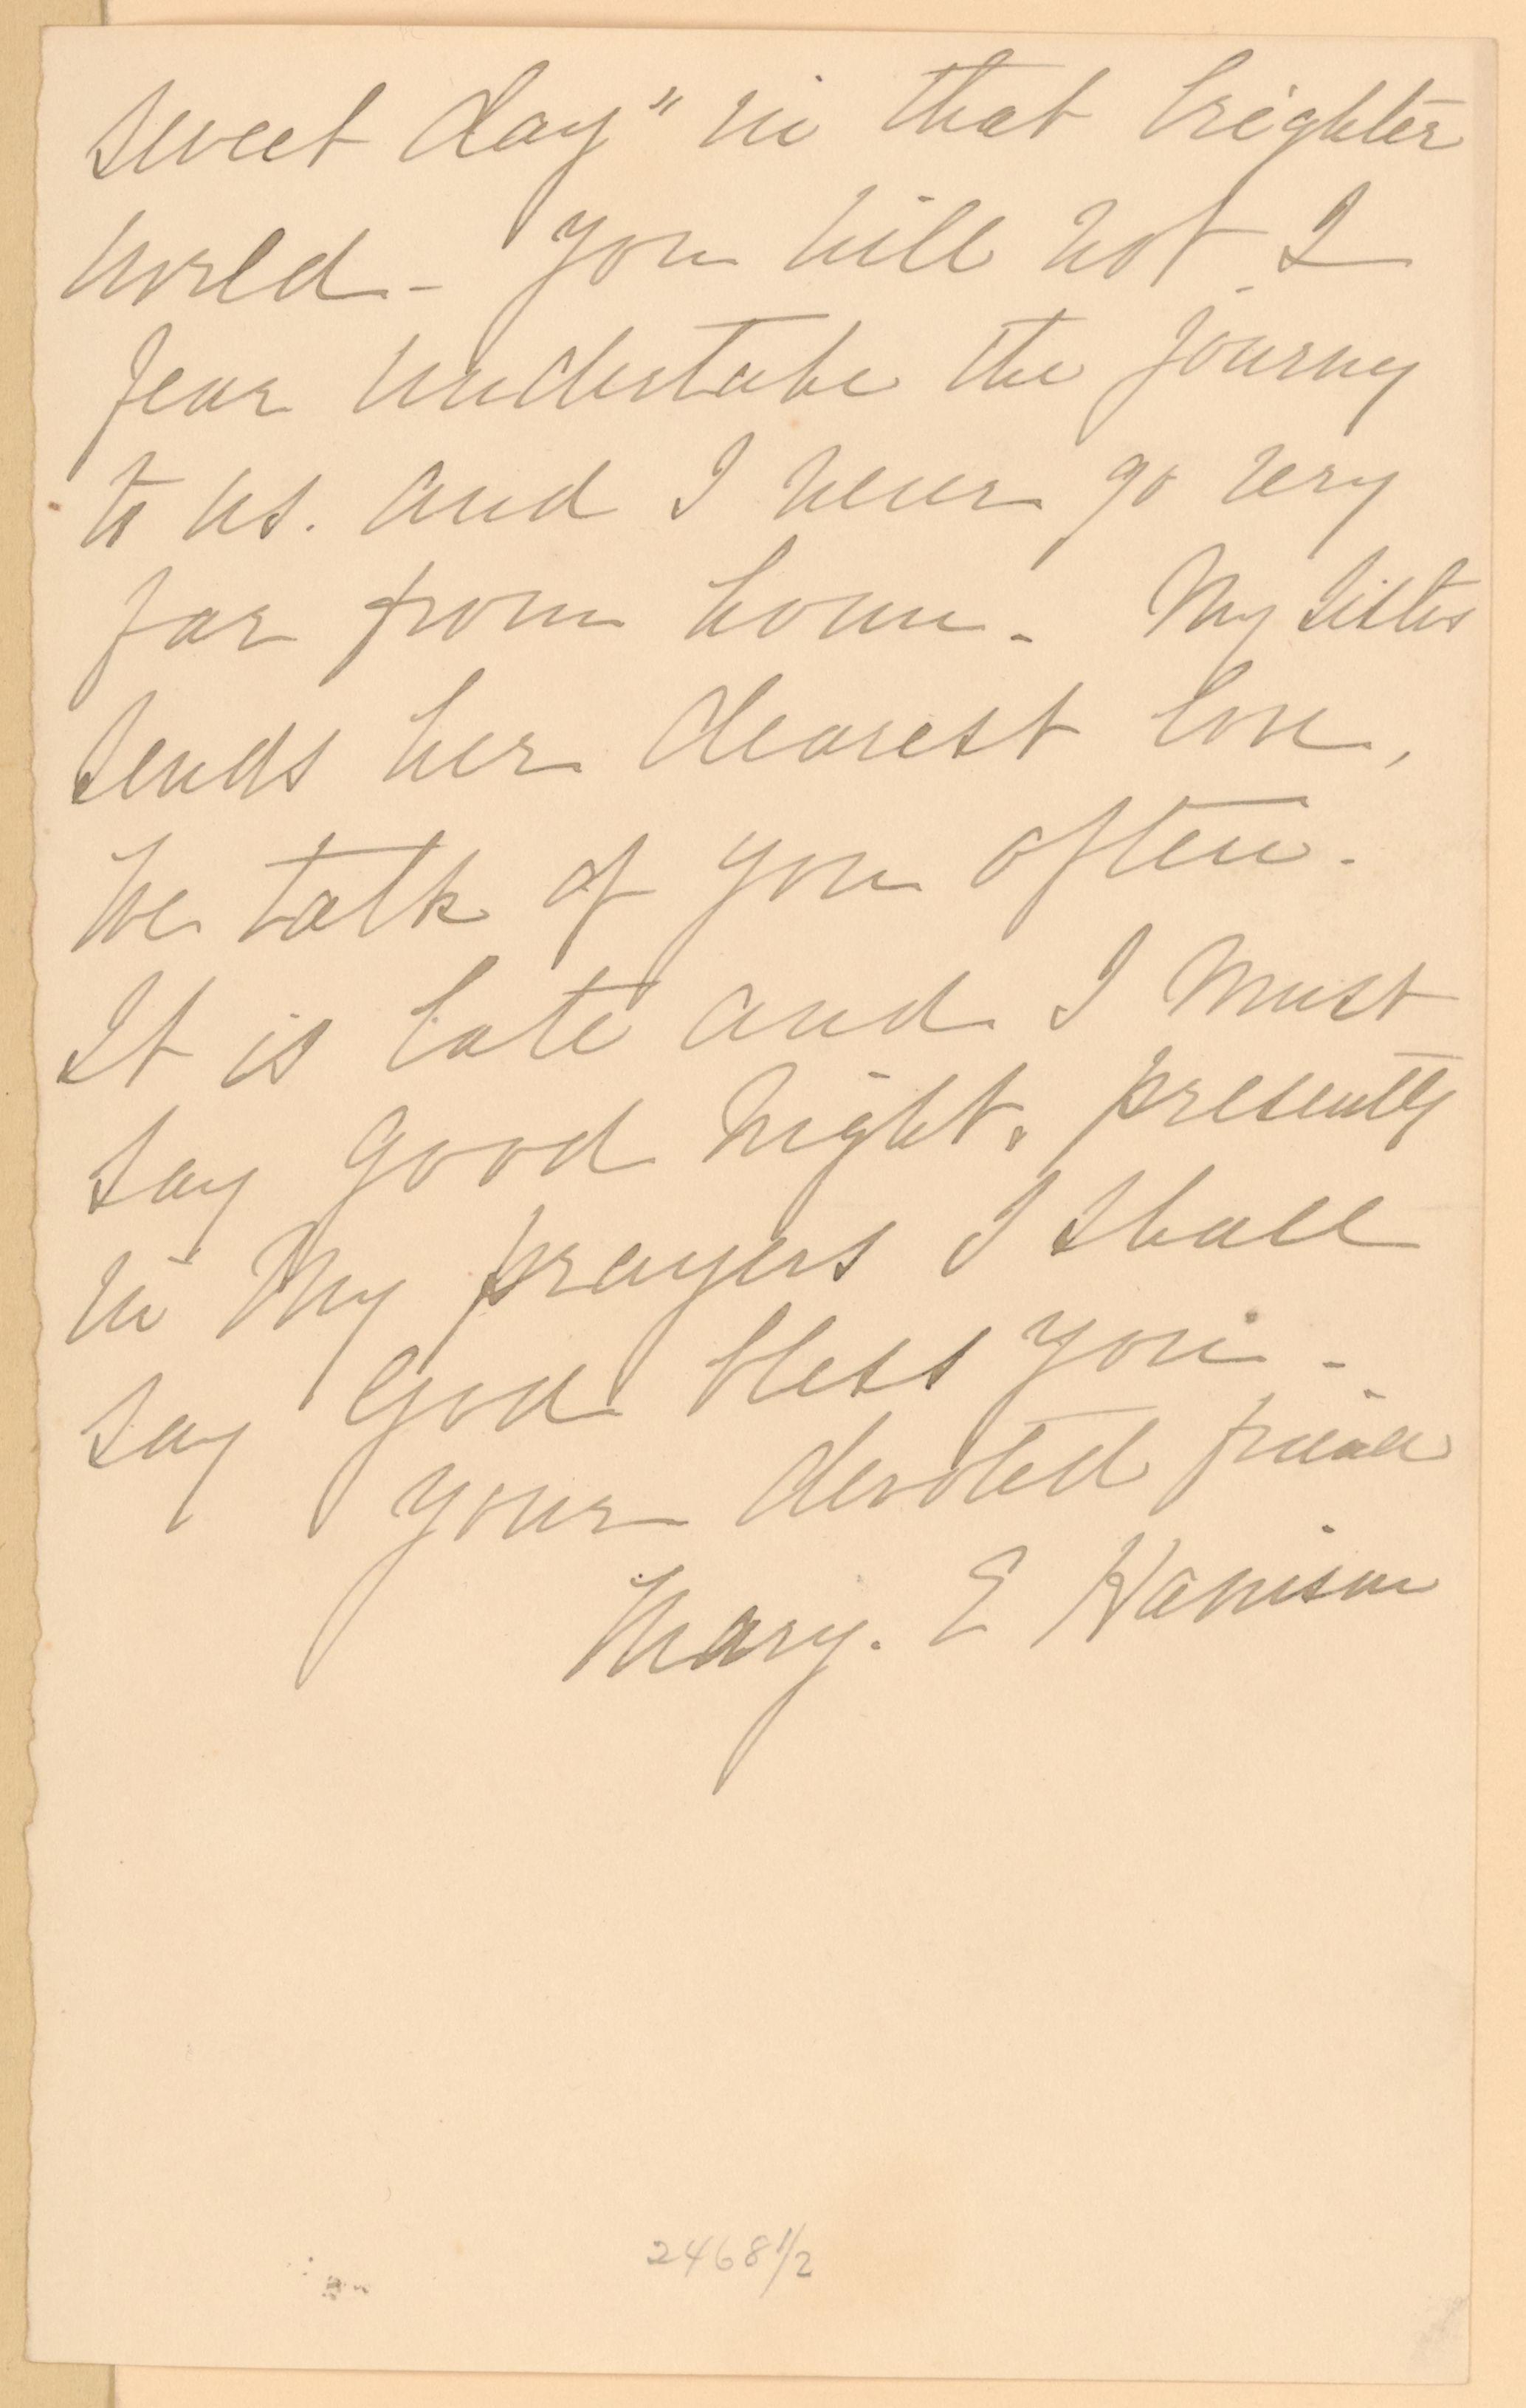 sweet day" in that brighter
world - you will not I
fear undertake the journey
to us. and I never go very
far from home - My sister
sends her dearest love,
We talk of you often -
It is late and I must
say good night. presently
in my prayers I shall
say God bless you -
your devoted friend
Mary. E Harrison
2468 1/2